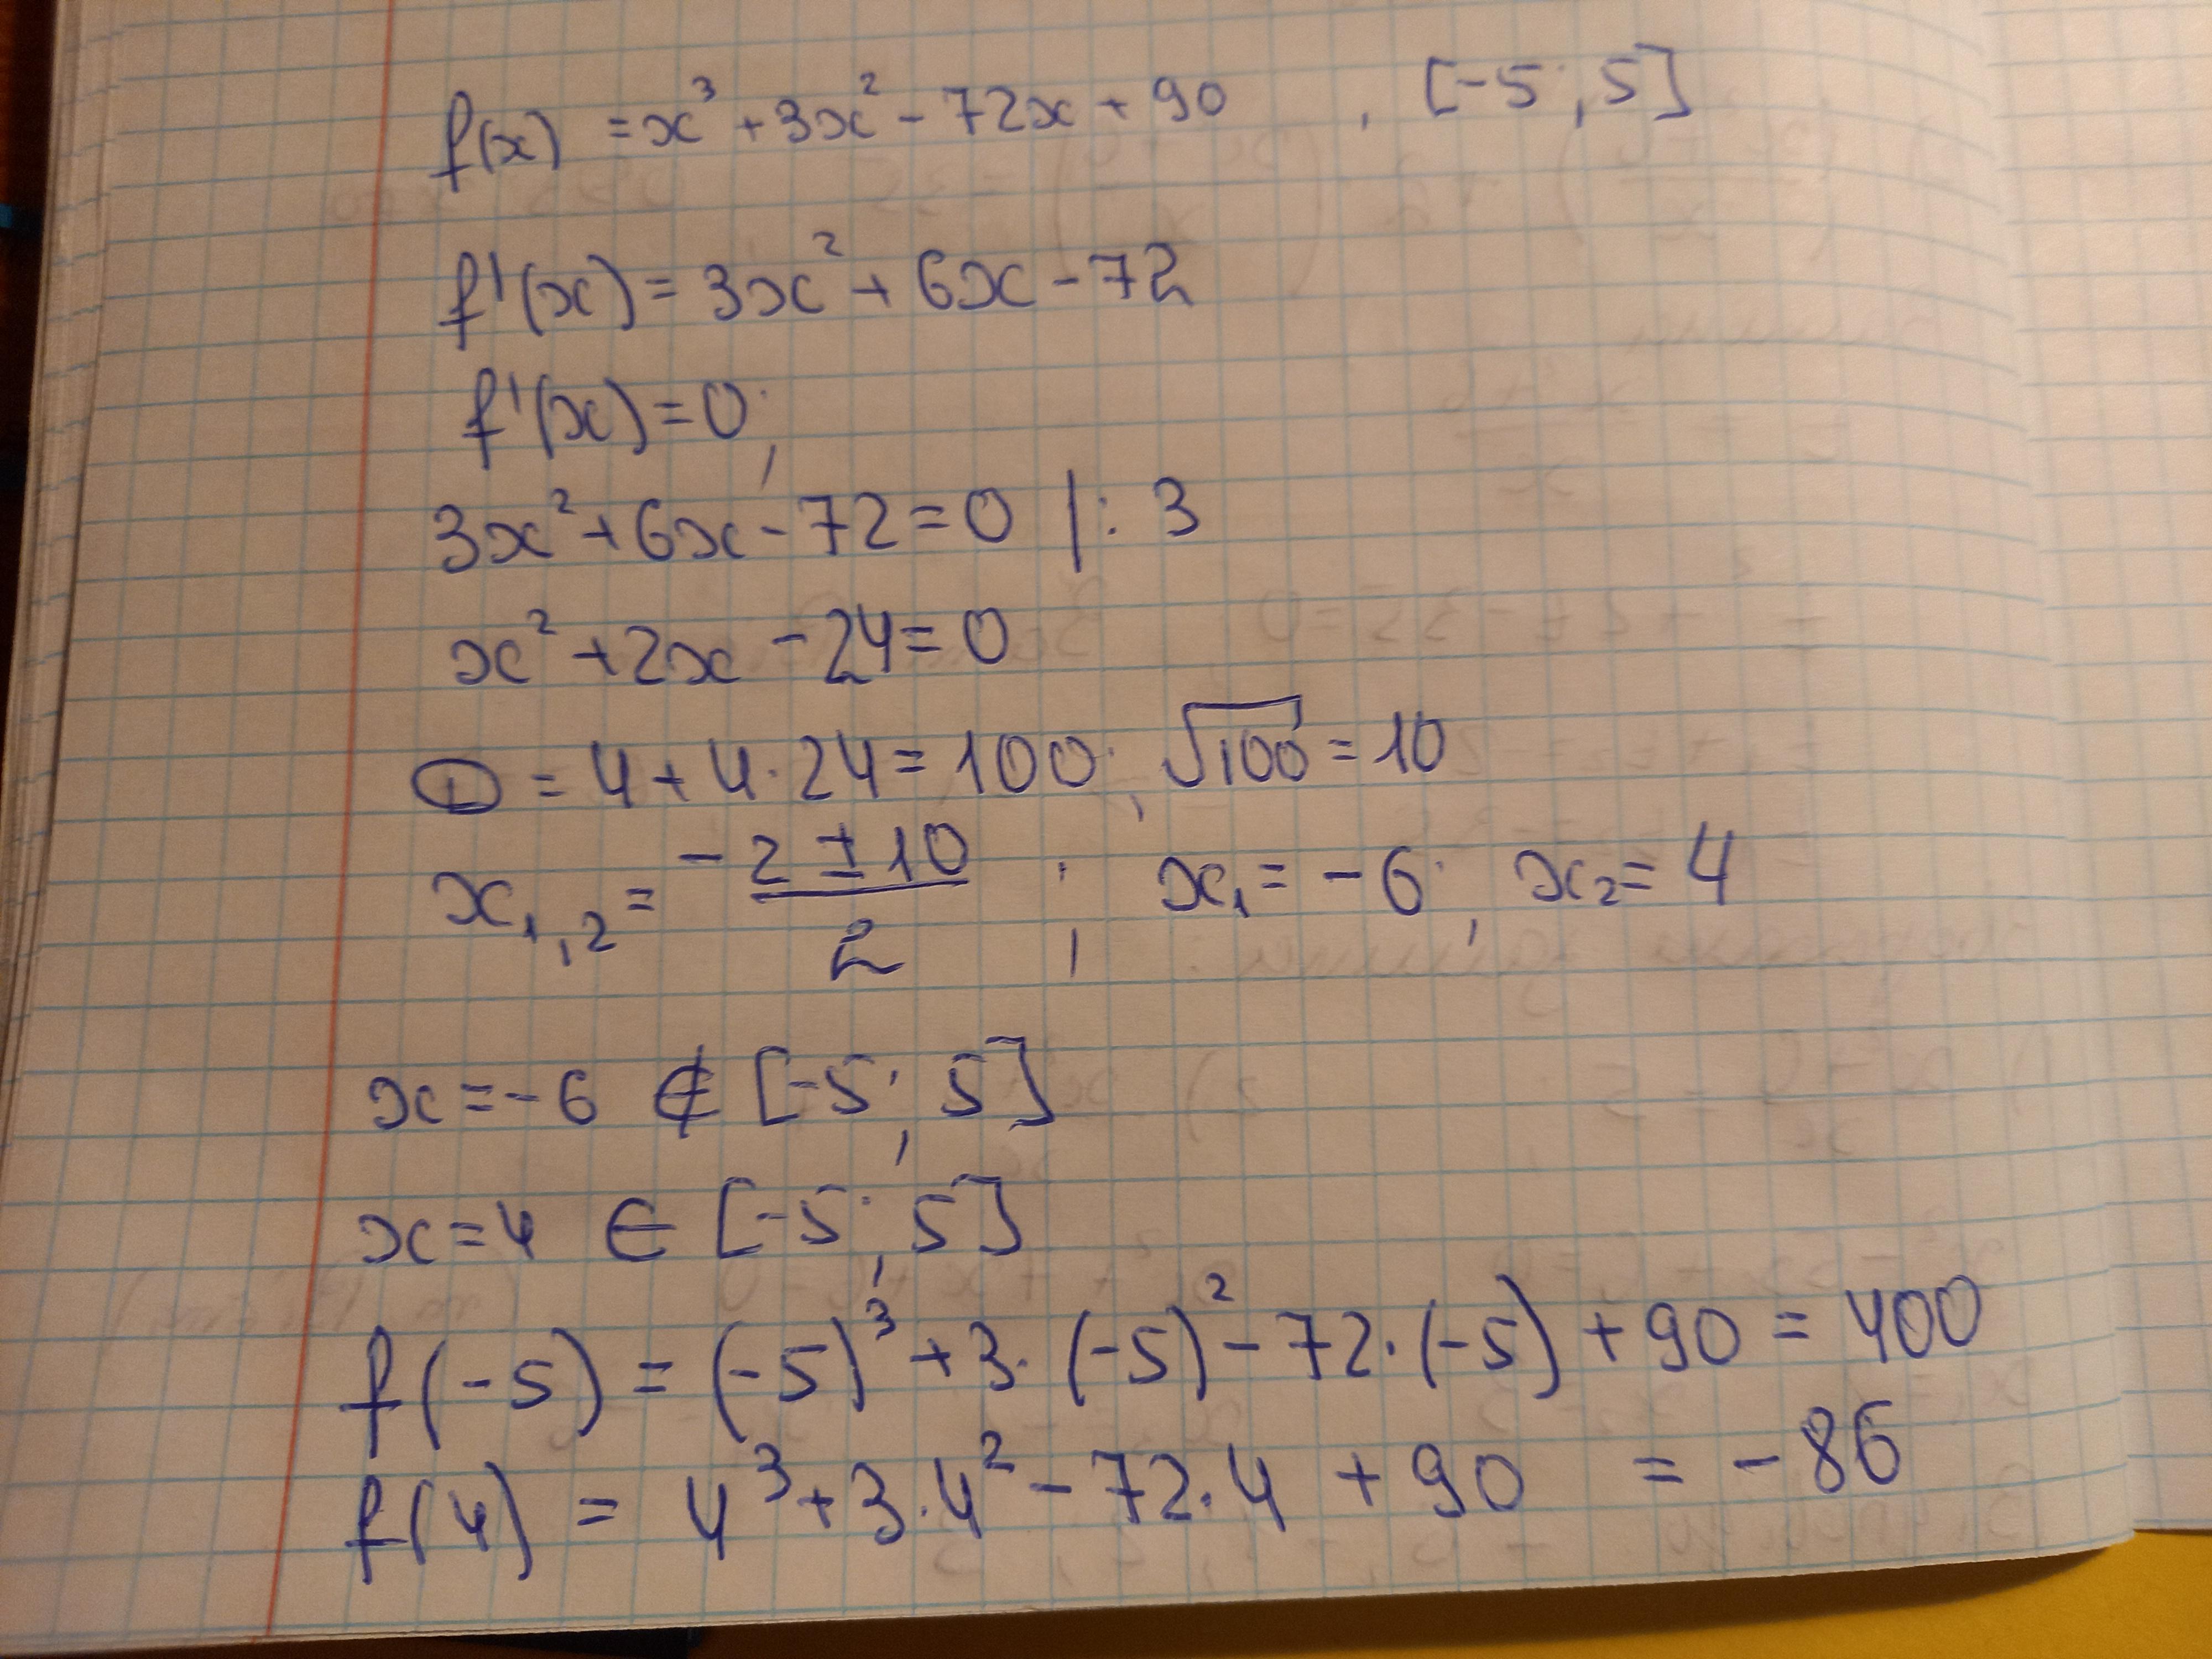 f(x) = x³ + 3x² - 72x + 90 , [-5; 5]
f'(x) = 3x² + 6x - 72
f'(x) = 0;
3x² + 6x - 72 = 0 |: 3
x² + 2x - 24 = 0
D = 4 + 4·24 = 100; √100 = 10
x₁,₂ = (-2 ± 10)/2 ; x₁ = -6; x₂ = 4
x = -6 ∉ [-5; 5]
x = 4 ∈ [-5; 5]
f(-5) = (-5)³ + 3·(-5)² - 72·(-5) + 90 = 400
f(4) = 4³ + 3·4² - 72·4 + 90 = -86